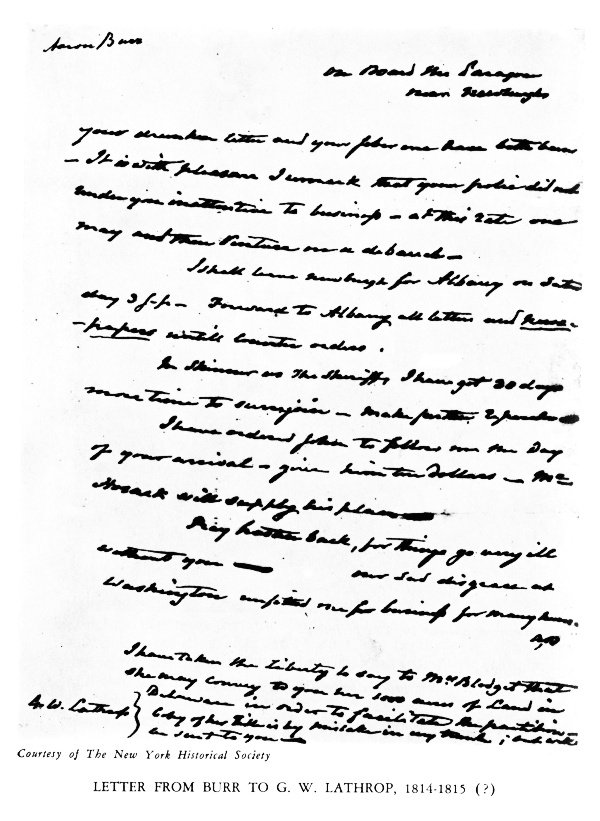 Aaron Burr
On Board the Paragon
near Newburgh
your drunken letter and your sober one have both been
– It is with pleasure I remark that your frolic did not
render you inattentive to business – at this rate one
may and then Venture on a debauch –
I shall leave Newburgh for Albany on Satur
day 3 – Forward to Albany all letters and news–
–papers untill counter orders.
In Skinner vs The Sheriffs I have got 20 days
more time to surrejoin – make further
I have ordered John to follow me the Day
of your arrival – give him ten Dollars – Mr
Hosack will supply his place
Pray hasten back, for things go very ill
without you — our sad disgrace at
Washington unfitted me for business for many hours.
I have taken the Liberty to say to Mrs Blodget that
she may convey to you her 5000 acres of Land in
Delaware in order to facilitate the partition –
G. W. Lathrop
Copy of her Bill is by mistake in my trunk;
be sent to you –
Courtesy of The New York Historical Society
LETTER FROM BURR TO G. W. LATHROP, 1814-1815 (?)